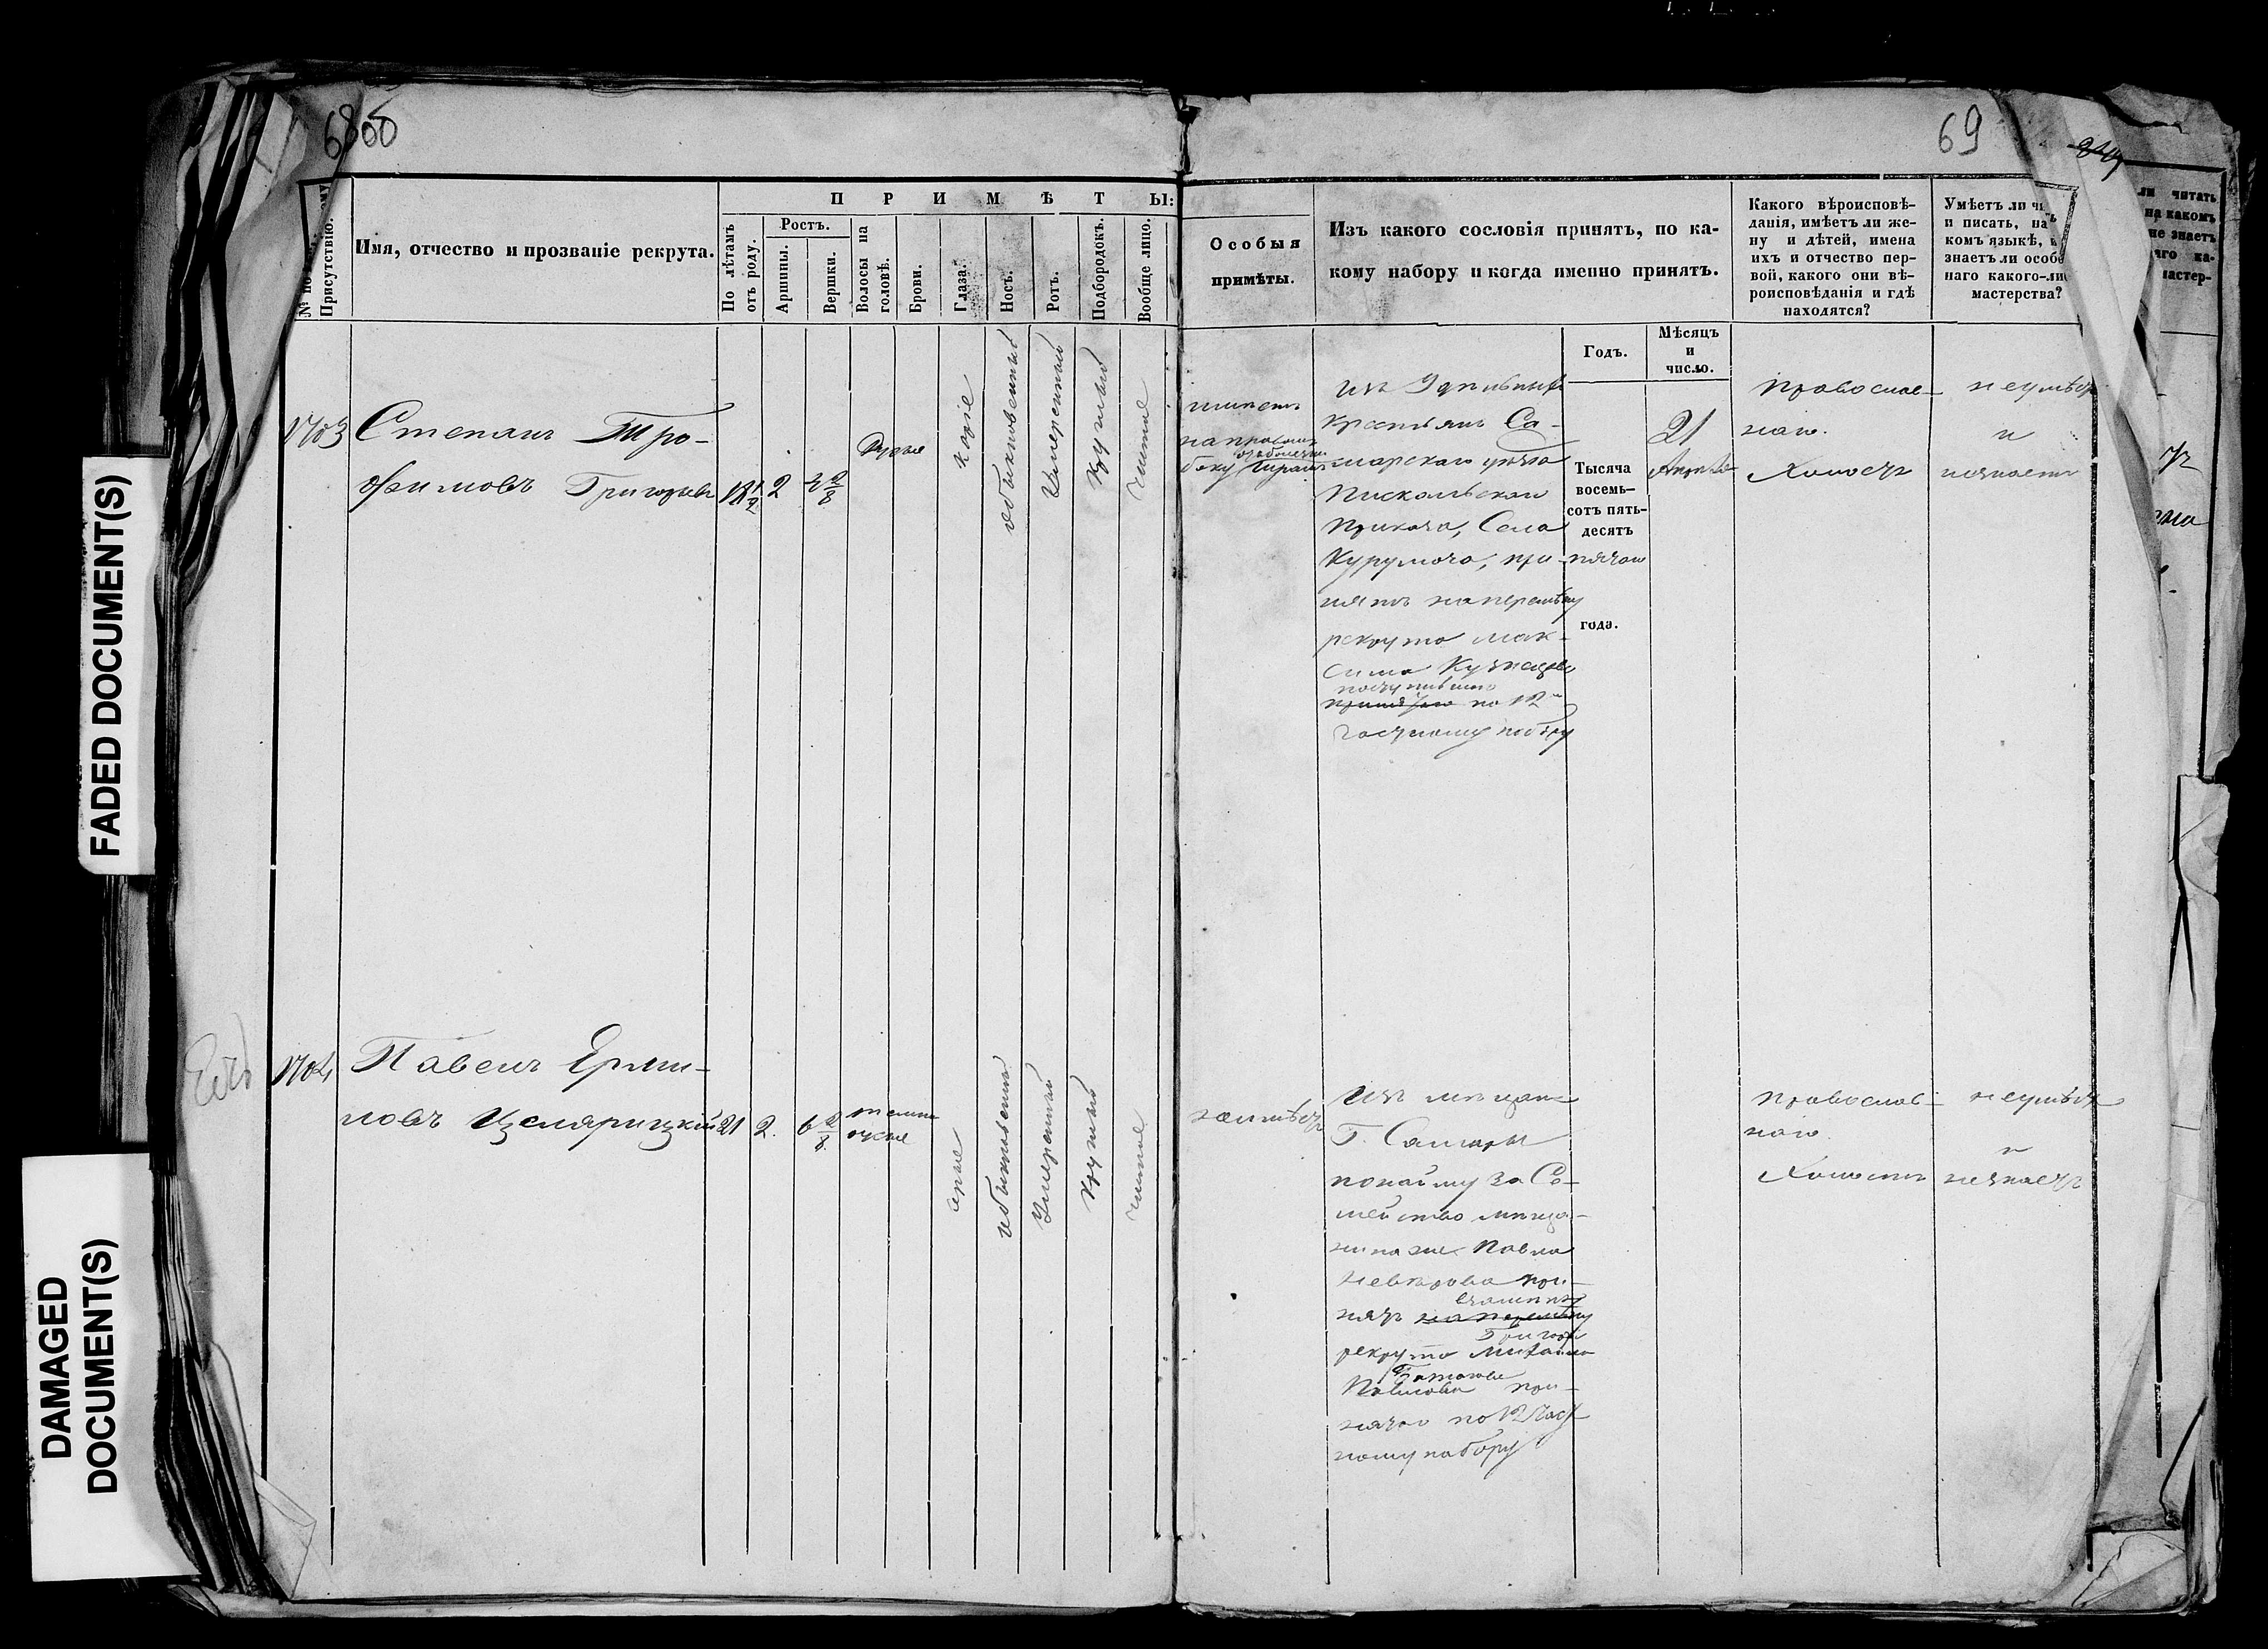 68об
69
FADED DOCUMENT(S)
DAMAGED
DOCUMENT(S)
Присутствію.
Имя, отчество и прозваніе рекрута.
ПРИМѢТЫ:
По лѣтамъ
отъ роду.
Ростъ.
Аршины.
Вершки.
Волосы на
головѣ.
Брови.
Глаза.
Носъ.
Ротъ.
Подбородокъ.
Вообще лицо.
Особыя
примѣты.
Изъ какого сословія принятъ, по ка-
кому набору и когда именно принятъ.
Какого вѣроисповѣ-
данія, имѣетъ ли же-
ну и дѣтей, имена
ихъ и отчество пер-
вой, какого они вѣ-
роисповѣданія и гдѣ
находятся?
Умѣетъ ли чи
и писать, на
комъ языкѣ,
знаетъ ли особе
наго какого-ли
мастерства?
Годъ.
Мѣсяцъ
и
число.
1703
Степанъ Тро-
фимовъ Григорьевъ
2
русые
каріе
обыкновенный
умеренный
круглый
чистое
имеетъ
на правомъ
боку
шрамъ
изъ Удѣльныхъ
крестьянъ Са-
марскаго уѣзда
Приказа, Села
Курумоча, при-
нятъ на перемѣну
рекрута Мак-
сима Кузнецова
поступившаго
по 12
частному набору
Тысяча
восемь-
сотъ пять-
десятъ
пятаго
года.
21
Апрѣля
православ-
наго.
Холостъ
неумѣетъ
и
незнаетъ
1704
Павелъ Ерми-
ловъ
21
2.
6 2/8
темно
русые
серые
обыкновенный
умеренный
круглый
чистое
неимѣетъ
Изъ мѣщанъ
Г. Самары
по найму за Се-
мейство мѣща-
нина же Павла
Неверова при-
нятъ на перемѣну
взаменъ
рекрута Михаила
Григорья
Павлова при-
нятаго по 12 част-
ному набору
православ-
наго.
Холостъ
неумѣетъ
и
незнаетъ
ли читать
на какомъ
не знаетъ